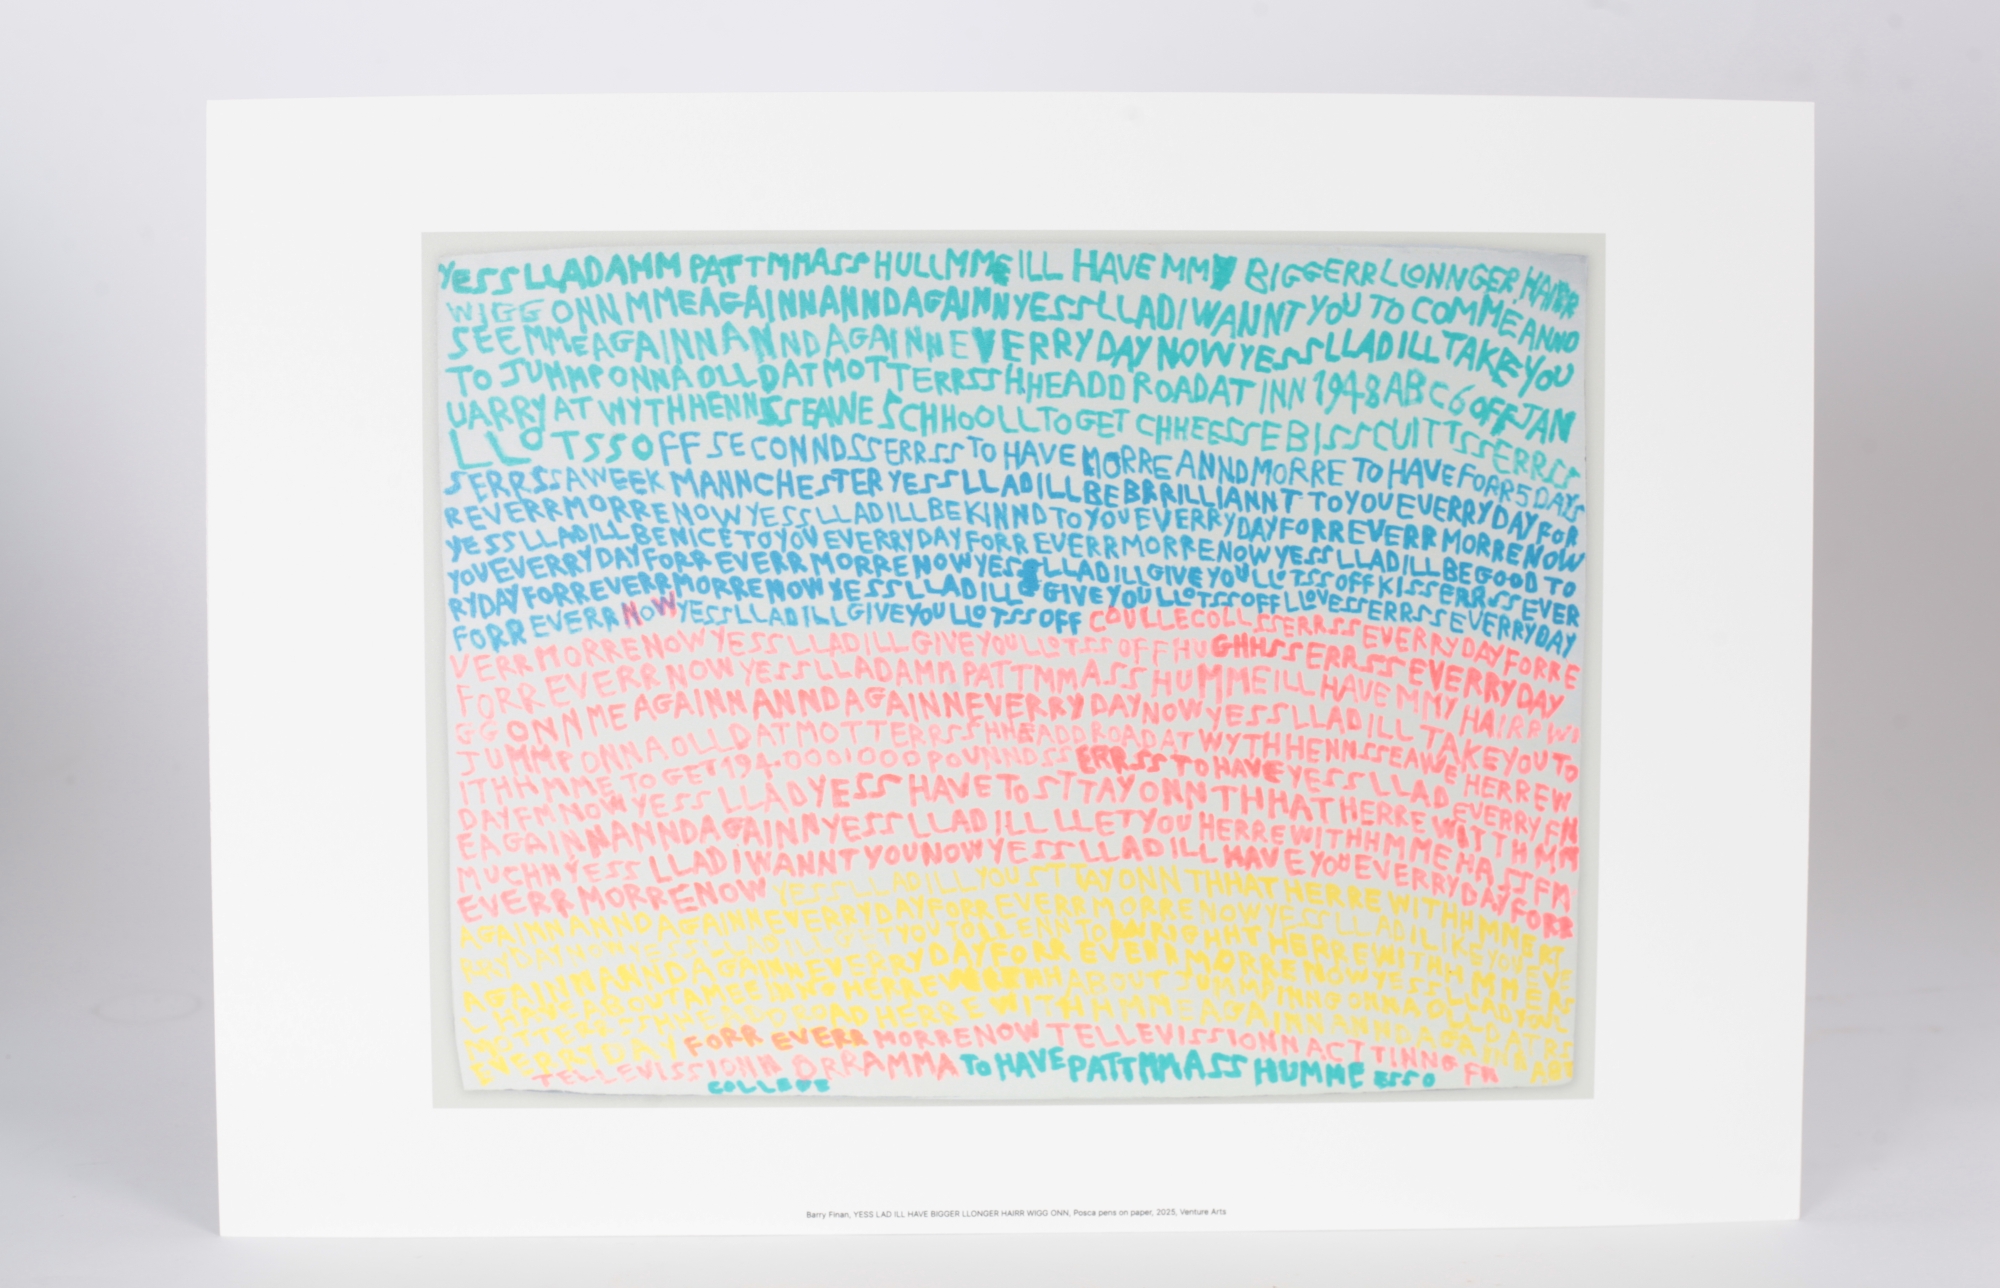 YESSLLADAMM PATTMMASS HULLMME ILL HAVE MMY BIGGERRLLONNGER HAIRR
WIGG ONN MMEAGAINNANNDAGAINNYESSLLADIWANNT YOU TO COMMEANND
SEEMMEAGAINNANNDAGAINNEVERRYDAYNOWYESSLLADILLTAKEYOU
TO JUMMPONNAOLLDATMOTTERRSSHHEADDROADAT INN 1948ABC6OFFJAN
UARRYAT WYTHHENNSSEAWE SCHHOOLLTOGET CHHEESSEBISSCUITTSSERRSS
LLOTSSOFFSECONNDSSERRSSTO HAVE MORRE ANNDMORRE TO HAVEFORR5DAYS
SERRSSAWEEK MANNCHESTERYESSLLADILLBEBRRILLIANNT TOYOUEVERRYDAYFOR
REVERRMORRENOWYESSLLADILLBEKINNDTOYOUEVERRYDAYFORREVERRMORRENOW
YESSLLADILLBENICETOYOUEVERRYDAYFORREVERRMORRENOWYESSLLADILLBEGOODTO
YOUEVERRYDAYFORREVERRMORRENOWYESSLLADILLGIVEYOULLOTSSOFFKISSERRSSEVER
RYDAYFORREVERRMORRENOWYESSLLADILLGIVEYOULLOTSSOFFLLOVESSERRSSEVERRYDAY
FORREVERRNOWYESSLLADILLGIVEYOULLOTSSOFF COULLECOLLSSERRSSEVERRYDAYFORRE
VERRMORRENOWYESSLLADILLGIVEYOULLOTSSOFFHUGHHSSERRSSEVERRYDAY
FORREVERRNOWYESSLLADAMMPATTMMASSHUMMEILLHAVEMMYHAIRRWI
GGONNMEAGAINNANNDAGAINNEVERRYDAYNOWYESSLLADILLTAKEYOUTO
JUMMPONNAOLLDATMOTTERRSSHHEADDROADATWYTHHENNSSEAWEHERREW
ITHHMMETOGET194.0001000POUNNDSSERRSSTOHAVEYESSLLADEVERRYFN
DAYFMNOWYESSLLADYESSHAVETOSTTAYONNTHHATHERREWITTHMM
EAGAINNANNDAGAINNYESSLLADILLLLETYOUHERREWITHHMMEHASSFM
MUCHHYESSLLADIWANNTYOUNOWYESSLLADILLHAVEYOUEVERRYDAYFORR
EVERRMORRENOWYESSLLADILLYOUSTTAYONNTHHATHERREWITHHMME
AGAINNANNDAGAINNEVERRYDAYFORREVERRMORRENOWYESSLLADILIKEYOUEVE
RRYDAYNOWYESSLLADILL HERREWITHHMME
AGAINNANNDAGAINNEVERRYDAYFORREVERRMORRENOWYESSLLAD
HERRE ABOUT JUMMPINNGONNAOLLDAT
MOTTERRSSHHEADDROAD HERRE WITHHMMEAGAINNANNDAGAINN
EVERRYDAYFORR EVERR MORRENOW TELLEVISSIONNACTTINNG FM
TELLEVISSIONN DRRAMMATO HAVEPATTMMASS HUMME
COLLEGE
Barry Finan, YESS LAD ILL HAVE BIGGER LLONGER HAIRR WIGG ONN, Posca pens on paper, 2025, Venture Arts